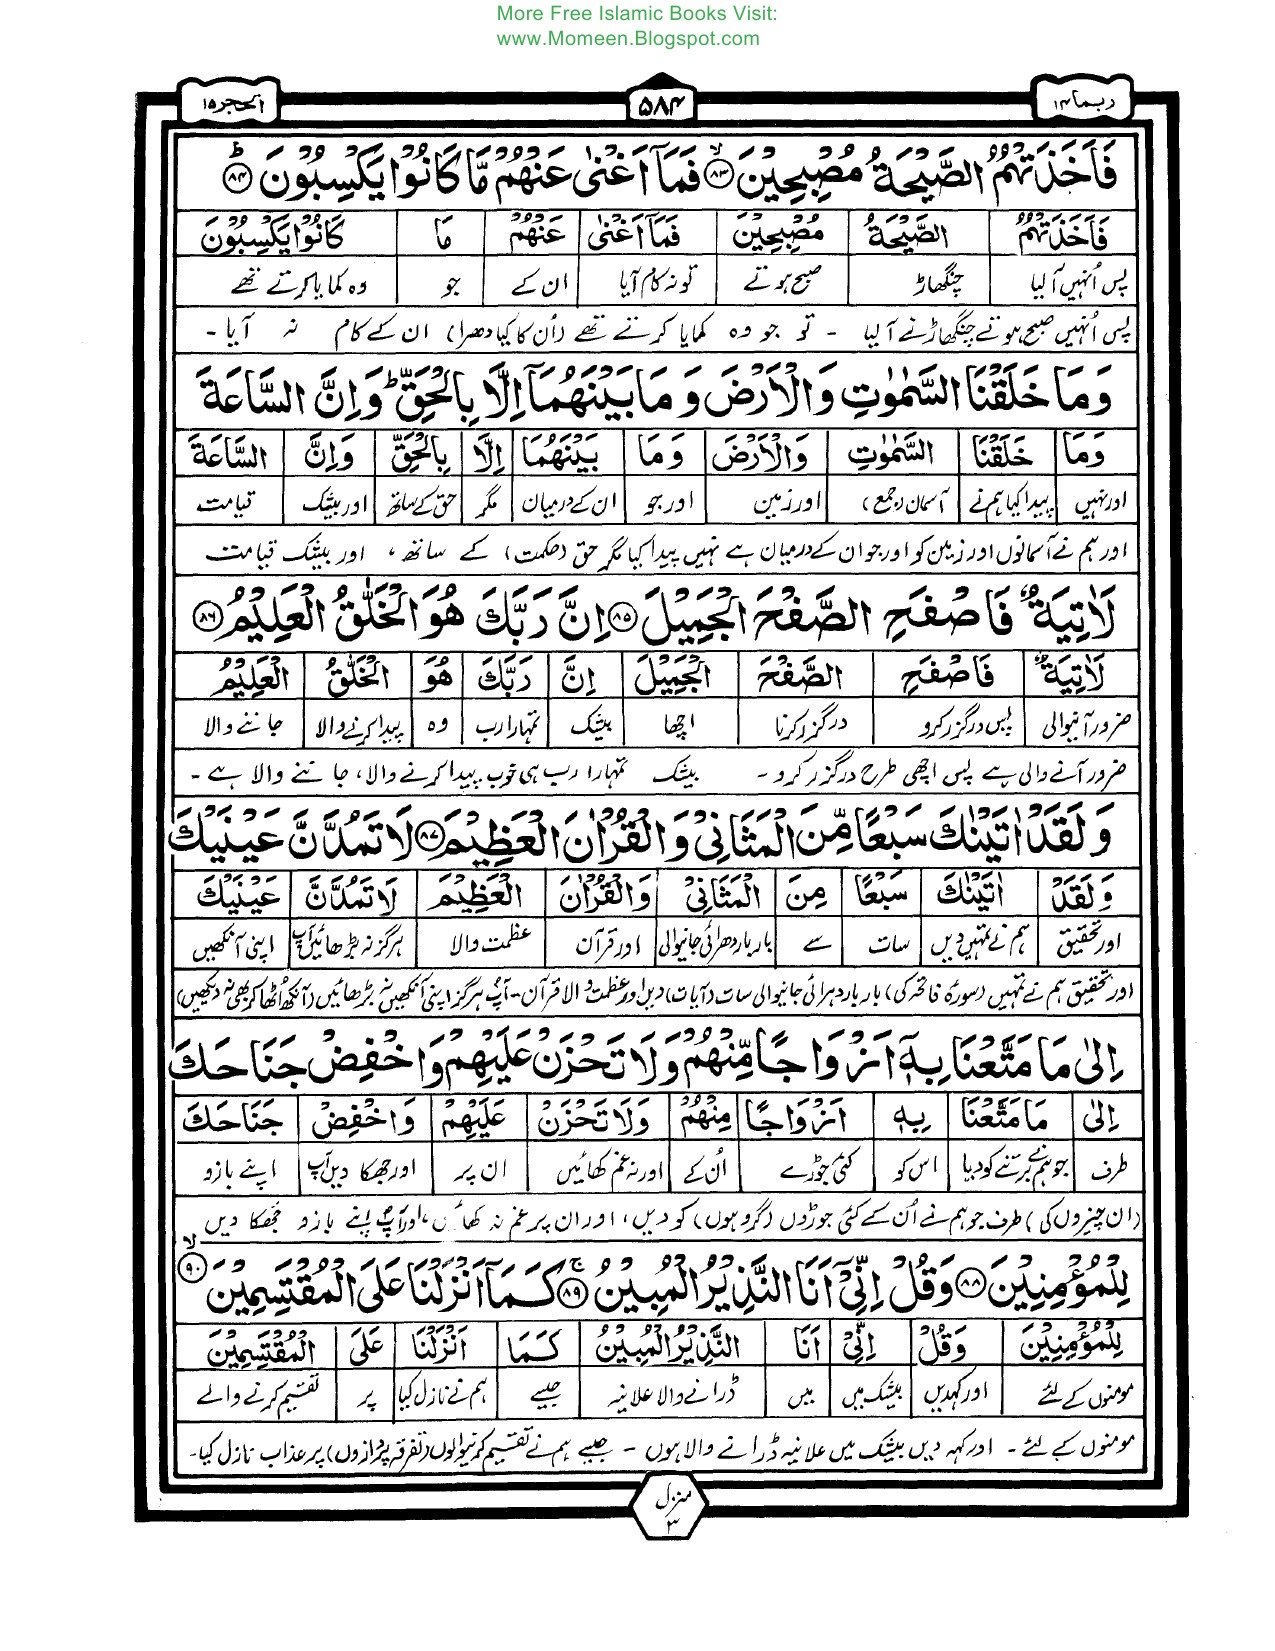 More Free Islamic Books Visit:
www.Momeen.Blogspot.com
ربما ۱۴
۵۸۴
الحجر ۱۵
فَاَخَذَتْهُمُ الصَّيْحَةُ مُصْبِحِيْنَ ۙ﴿۸۳﴾ فَمَاۤ اَغْنٰى عَنْهُمْ مَّا كَانُوْا يَكْسِبُوْنَ ؕ﴿۸۴﴾
فَاَخَذَتْهُمُ الصَّيْحَةُ مُصْبِحِيْنَ فَمَاۤ اَغْنٰى عَنْهُمْ مَا كَانُوْا يَكْسِبُوْنَ
پس اُنہیں آلیا چنگھاڑ صبح ہوتے تو نہ کام آیا ان کے جو وہ کمایا کرتے تھے
پس اُنہیں صبح ہوتے چنگھاڑ نے آلیا - تو جو وہ کمایا کرتے تھے (اُن کا کیا دھرا) ان کے کام نہ آیا -
وَمَا خَلَقْنَا السَّمٰوٰتِ وَالْاَرْضَ وَمَا بَيْنَهُمَاۤ اِلَّا بِالْحَقِّ ؕ وَاِنَّ السَّاعَةَ
وَمَا خَلَقْنَا السَّمٰوٰتِ وَالْاَرْضَ وَمَا بَيْنَهُمَا اِلَّا بِالْحَقِّ وَاِنَّ السَّاعَةَ
اور نہیں پیدا کیا ہم نے آسمان (جمع) اور زمین اور جو ان کے درمیان مگر حق کے ساتھ اور بیشک قیامت
اور ہم نے آسمانوں اور زمین کو اور جو ان کے درمیان ہے نہیں پیدا کیا مگر حق (حکمت) کے ساتھ، اور بیشک قیامت
لَاٰتِيَةٌ فَاصْفَحِ الصَّفْحَ الْجَمِيْلَ ﴿۸۵﴾ اِنَّ رَبَّكَ هُوَ الْخَلّٰقُ الْعَلِيْمُ ﴿۸۶﴾
لَاٰتِيَةٌ فَاصْفَحِ الصَّفْحَ الْجَمِيْلَ اِنَّ رَبَّكَ هُوَ الْخَلّٰقُ الْعَلِيْمُ
ضرور آنیوالی پس درگزر کرو درگزر کرنا اچھا بیشک تمہارا رب وہ پیدا کرنے والا جاننے والا
ضرور آنے والی ہے پس اچھی طرح درگزر کرو - بیشک تمہارا رب ہی خوب پیدا کرنے والا، جاننے والا ہے -
وَلَقَدْ اٰتَيْنٰكَ سَبْعًا مِّنَ الْمَثَانِيْ وَالْقُرْاٰنَ الْعَظِيْمَ ﴿۸۷﴾ لَا تَمُدَّنَّ عَيْنَيْكَ
وَلَقَدْ اٰتَيْنٰكَ سَبْعًا مِنَ الْمَثَانِيْ وَالْقُرْاٰنَ الْعَظِيْمَ لَا تَمُدَّنَّ عَيْنَيْكَ
اور تحقیق ہم نے تمہیں دیں سات سے بار بار دھرائی جانیوالی اور قرآن عظمت والا ہرگز نہ بڑھائیں آپ اپنی آنکھیں
اور تحقیق ہم نے تمہیں (سورۂ فاتحہ کی) بار بار دہرائی جانیوالی سات (آیات) دیں اور عظمت والا قرآن - آپ ہرگز اپنی آنکھیں نہ بڑھائیں (آنکھ اٹھا کر بھی نہ دیکھیں)
اِلٰى مَا مَتَّعْنَا بِهٖۤ اَزْوَاجًا مِّنْهُمْ وَلَا تَحْزَنْ عَلَيْهِمْ وَاخْفِضْ جَنَاحَكَ
اِلٰى مَا مَتَّعْنَا بِهٖ اَزْوَاجًا مِنْهُمْ وَلَا تَحْزَنْ عَلَيْهِمْ وَاخْفِضْ جَنَاحَكَ
طرف جو ہم نے برتنے کو دیا اس کو کئی جوڑے اُن کے اور نہ غم کھائیں ان پر اور جھکا دیں آپ اپنے بازو
(ان چیزوں کی) طرف جو ہم نے اُن کے کئی جوڑوں (گروہوں) کو دیں، اور ان پر غم نہ کھائیں، اور آپ اپنے بازو جھکا دیں
لِلْمُؤْمِنِيْنَ ﴿۸۸﴾ وَقُلْ اِنِّيْۤ اَنَا النَّذِيْرُ الْمُبِيْنُ ۚ﴿۸۹﴾ كَمَاۤ اَنْزَلْنَا عَلَى الْمُقْتَسِمِيْنَ ۙ﴿۹۰﴾
لِلْمُؤْمِنِيْنَ وَقُلْ اِنِّيْ اَنَا النَّذِيْرُ الْمُبِيْنُ كَمَا اَنْزَلْنَا عَلَى الْمُقْتَسِمِيْنَ
مومنوں کے لئے اور کہدیں بیشک میں میں ڈرانے والا علانیہ جیسے ہم نے نازل کیا پر تقسیم کرنے والے
مومنوں کے لئے - اور کہہ دیں بیشک میں علانیہ ڈرانے والا ہوں - جیسے ہم نے تقسیم کرنیوالوں (تفرقہ پردازوں) پر عذاب نازل کیا -
منزل ۳